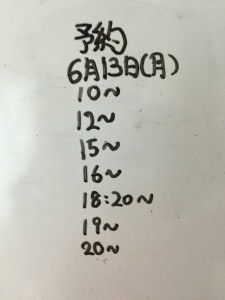 予約
6月13日(月)
10~
12~
15~
16~
18:20~
19~
20~